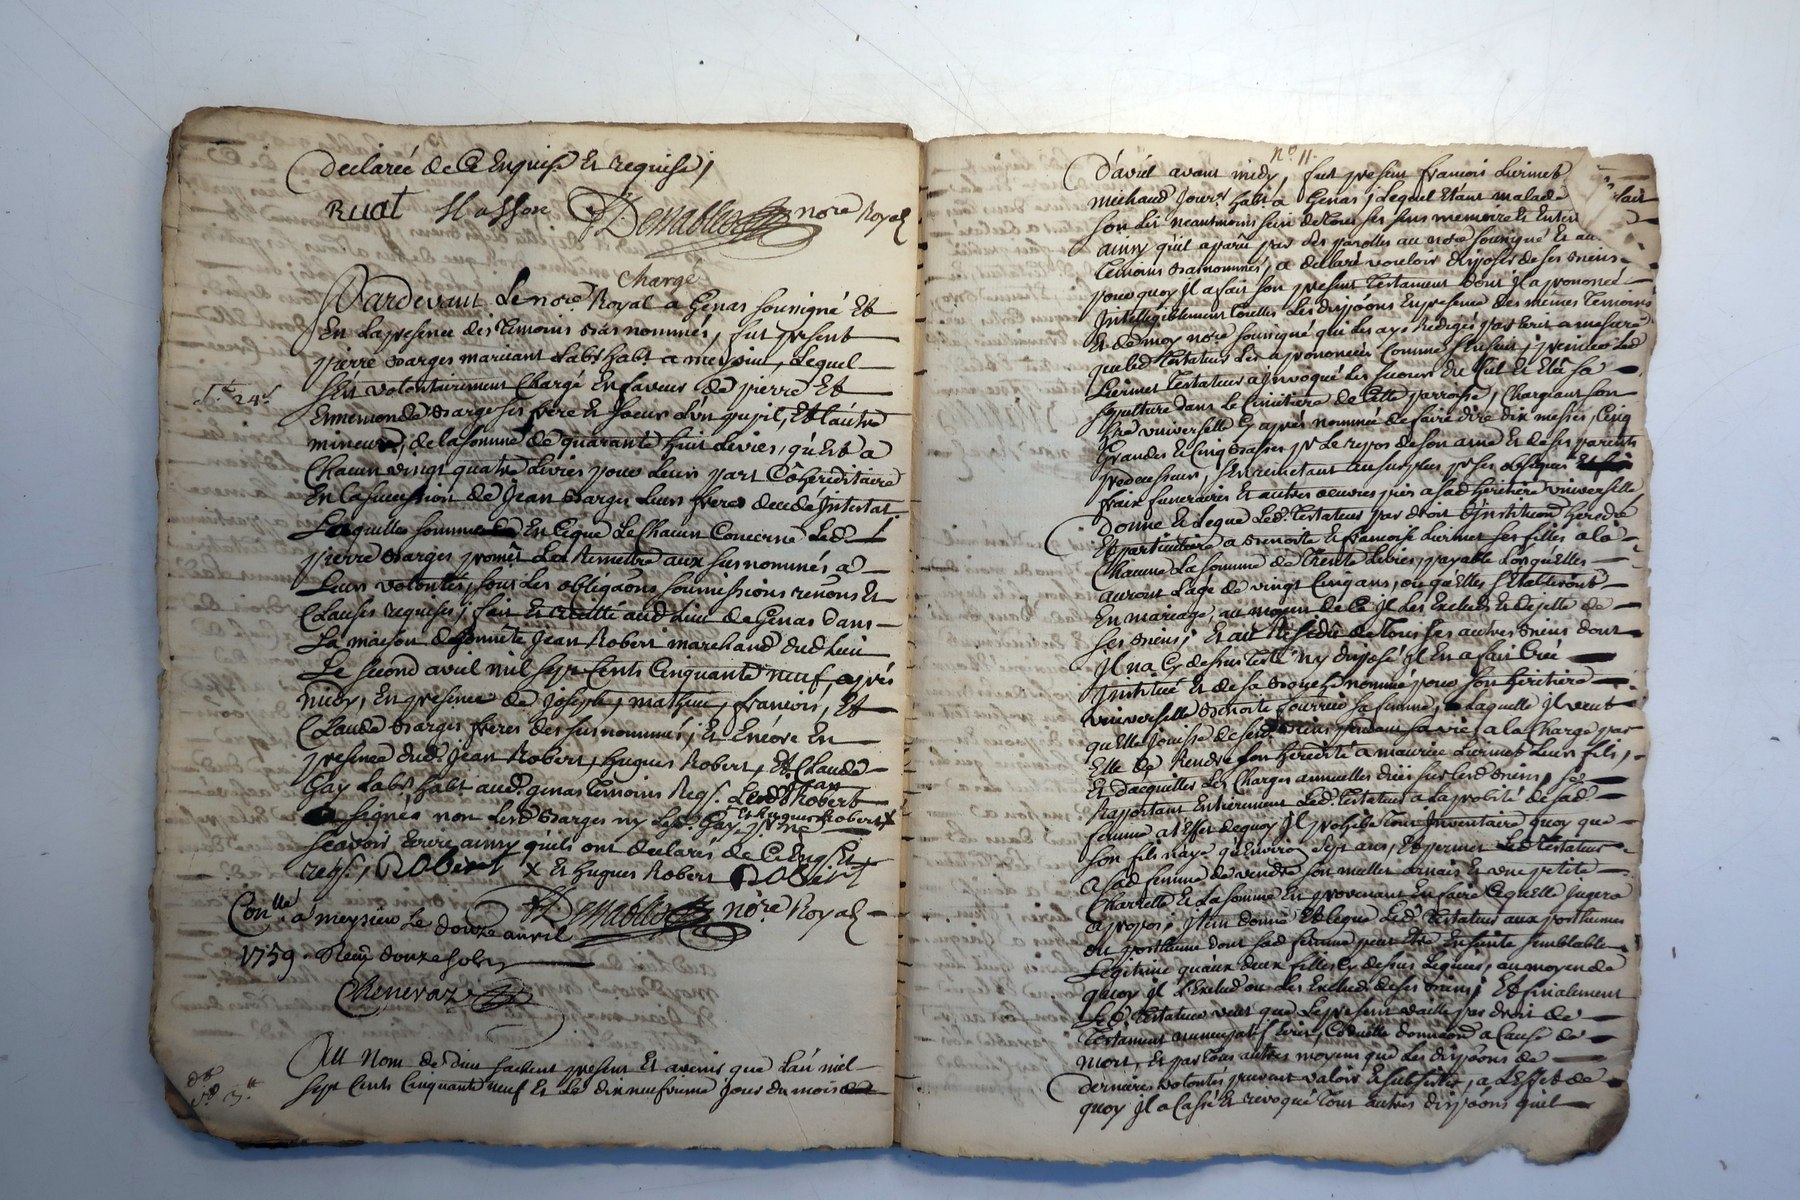 Declarée de Ce Enquise Et requise,
Ruat Masson Derrables no.re Royal
Chargé
Pardevant Le no.re Royal a Genas soussigné Et
En La presence des temoins Bas nommés, fut present
pierre Barges marciant Lab.r hab.t a meysieu, Lequel
s'est volontairement Chargé En faveur de pierre Et
Ennemonde Barges ses frere Et soeur L'un pupil, Et L'autre
mineure, de La somme de quarante huit Livres, qu'Est a
Chacun vingt quatre Livres pour Leur part Cohereditaire
En La succession de Jean Barges Leur frere decedé Intestat
Laquelle somme En Ce que Le Chacun Concerne Led.
pierre Barges promet La Remettre aux susnommés a
Leurs volontés, sous Les obligaons soumissions renons Et
Clauses requises, fait Et recitté aud. Lieu de Genas dans
La maison d'honnête Jean Robert marchand dud. Lieu
Le second avril mil sept Cents Cinquante neuf, après
midy, En presence de Joseph, mathieu, francois, Et
Claude Barges freres des susnommés, Et Encore En
presence dud. Jean Robert, hugues Robert, Et Claude
Gay Lab.r hab.t aud. genas temoins Req.s Led. Jean Robert
signés non Lesd. Barges ny Led. Gay pour ne Et hugues Robert
scavoir Ecrire ainsy qu'ils ont declarés de Ce Enq.s Et
req.s, Robert x Et hugues Robert Robert
Derrables no.re Royal
Con.llé a meysieu Le douze avril
1759. Reçu douze sols
Chenevaz
Au Nom de Dieu sachent presents Et avenir que L'an mil
sept Cents Cinquante neuf Et Le dix neufvieme jour du mois
n.o 11.
D'avril avant midy, fut present francois Liermet
michaud Jour.r hab.t a Genas, Lequel Etant malade
son Lit neantmoins sain de tous ses sens memoire Et Enten
ainsy qu'il a parû par ses parolles au no.re soussigné Et au
temoins Bas nommés, a declaré vouloir disposer de ses Biens
pourquoy Il a fait son present testament dont Il a prononcé
Intelligiblement toutes Les disp.ons En presence des memes temoins
Et de moy no.re soussigné qui Les ay Redigés par Ecrit a mesure
que Led. testateur Les a prononcées Comme s'Ensuit, premier Led.
Liermet testateur a Invoqué Les secours du Ciel Et Elû sa
sepulture dans Le Cimetiere de Cette parroisse, Chargeant son
h.re universelle Cy après nommée de faire dire dix messes, Cinq
Grandes Et Cinq Basses p.r Le repos de son ame Et de ses parents
predecesseurs, s'En remettant au surplus p.r ses obseques
fraix funeraires Et autres oeuvres pies a sad. heritiere universelle,
Donne Et Legue Led. testateur par droit d'Institution heredre
Et particuliere a Benoite Et francoise Liermet ses filles a la
Chacune La somme de trente Livres, payable Lorsqu'Elles
auront L'age de vingt Cinq ans, ou qu'Elles s'Etabliront
En mariage, au moyen de Ce Il Les Exclud Et dejette de
ses Biens, Et au Residu de tous ses autres Biens dont
Il n'a Cy dessus testé ny disposé Il En a fait Creé
Institué Et de sa Bouche nommé pour son heritiere
universelle Benoite fourrier sa femme, a Laquelle Il veut
qu'Elle Jouisse de sesd. Biens pendant sa vie, a la Charge par
Elle de Rendre son heredité a maurice Liermet Leur fils,
Et d'acquitter Les Charges annuelles dües sur Lesd. Biens, se
Rapportant Entierement Led. testateur a La probité de sad.
femme a L'Effet de quoy Il prohibe tout Inventaire quoy que
son fils n'aye qu'Environ sept ans, Et permet Led. testateur
a sad. femme de vendre son mullet harnais Et une petite
Charrette Et La somme En provenant En faire Ce qu'Elle Jugera
a propos, Item donne Et Legue Led. testateur aux posthumes
ou posthume dont sad. femme peut Etre Enceinte semblable
Legitime qu'aux deux filles Cy dessus Leguées, au moyen de
quoy Il L'Exclud ou Les Exclud de ses Biens, Et finalement
Led. testateur veut que Le present vaille par droit de
testament nuncupatif Ecrit, Codicille donnaon a Cause de
mort, Et par tous autres moyens que Les disp.ons de
dernieres volontés peuvent valoir Et subsister, a L'Effet de
quoy Il a Cassé Et revoqué tout autres disp.ons qu'il